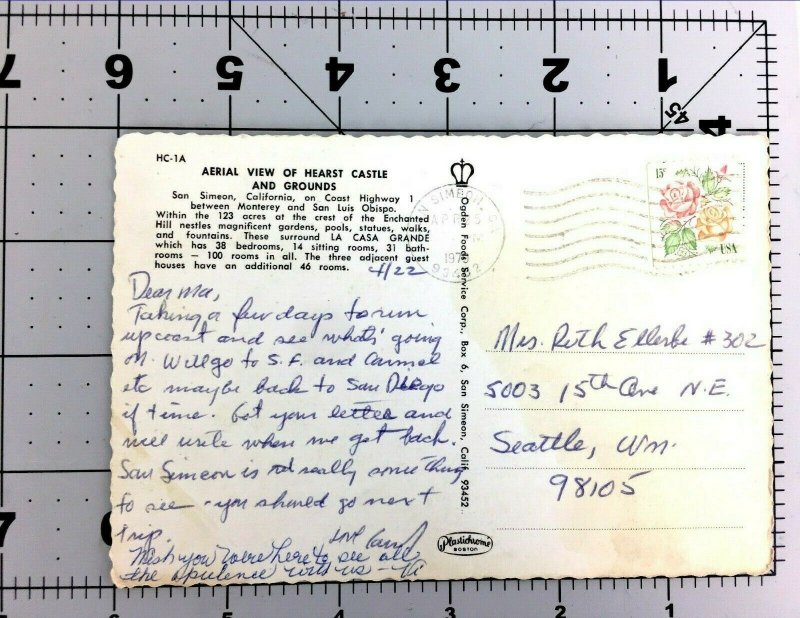 7 6 5 4 3 2 1
45
HC-1A
AERIAL VIEW OF HEARST CASTLE
AND GROUNDS
San Simeon, California, on Coast Highway 1
between Monterey and San Luis Obispo.
Within the 123 acres at the crest of the Enchanted
Hill nestles magnificent gardens, pools, statues, walks,
and fountains. These surround LA CASA GRANDE
which has 38 bedrooms, 14 sitting rooms, 31 bath-
rooms — 100 rooms in all. The three adjacent guest
houses have an additional 46 rooms.
4/22
Dear Ma,
Taking a few days to run
up coast and see what's going
on. Will go to S.F. and Carmel
etc maybe back to San Diego
if time. Got your letter and
will write when we get back.
San Simeon is really something
to see - you should go next
trip.
Love
Wish you were here to see all
the opulence with us -
Ogden Foods Service Corp., Box 6, San Simeon, Calif. 93452
Plastichrome
BOSTON
SIMEON, CA
93452
15c
USA
Mrs. Ruth Ellerbe #302
5003 15th Ave N.E.
Seattle, Wn.
98105
7
6
5 4 3 2 1